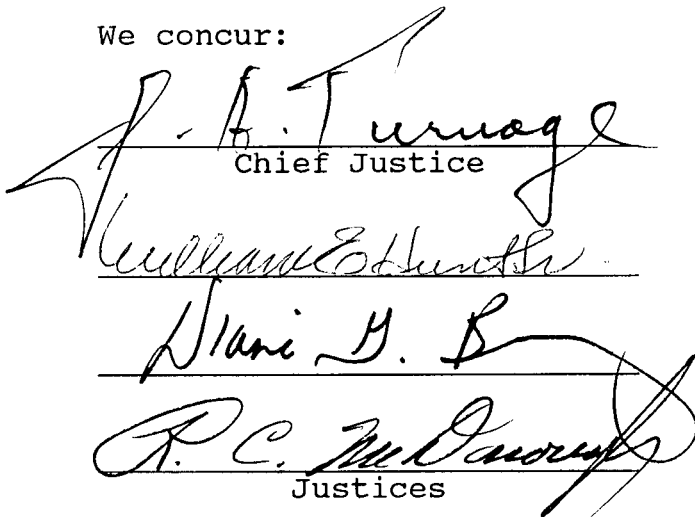 We concur:
J. A. Turnage
Chief Justice
William E. Hunt Sr.
Diane G. B
R. C. McDonough
Justices